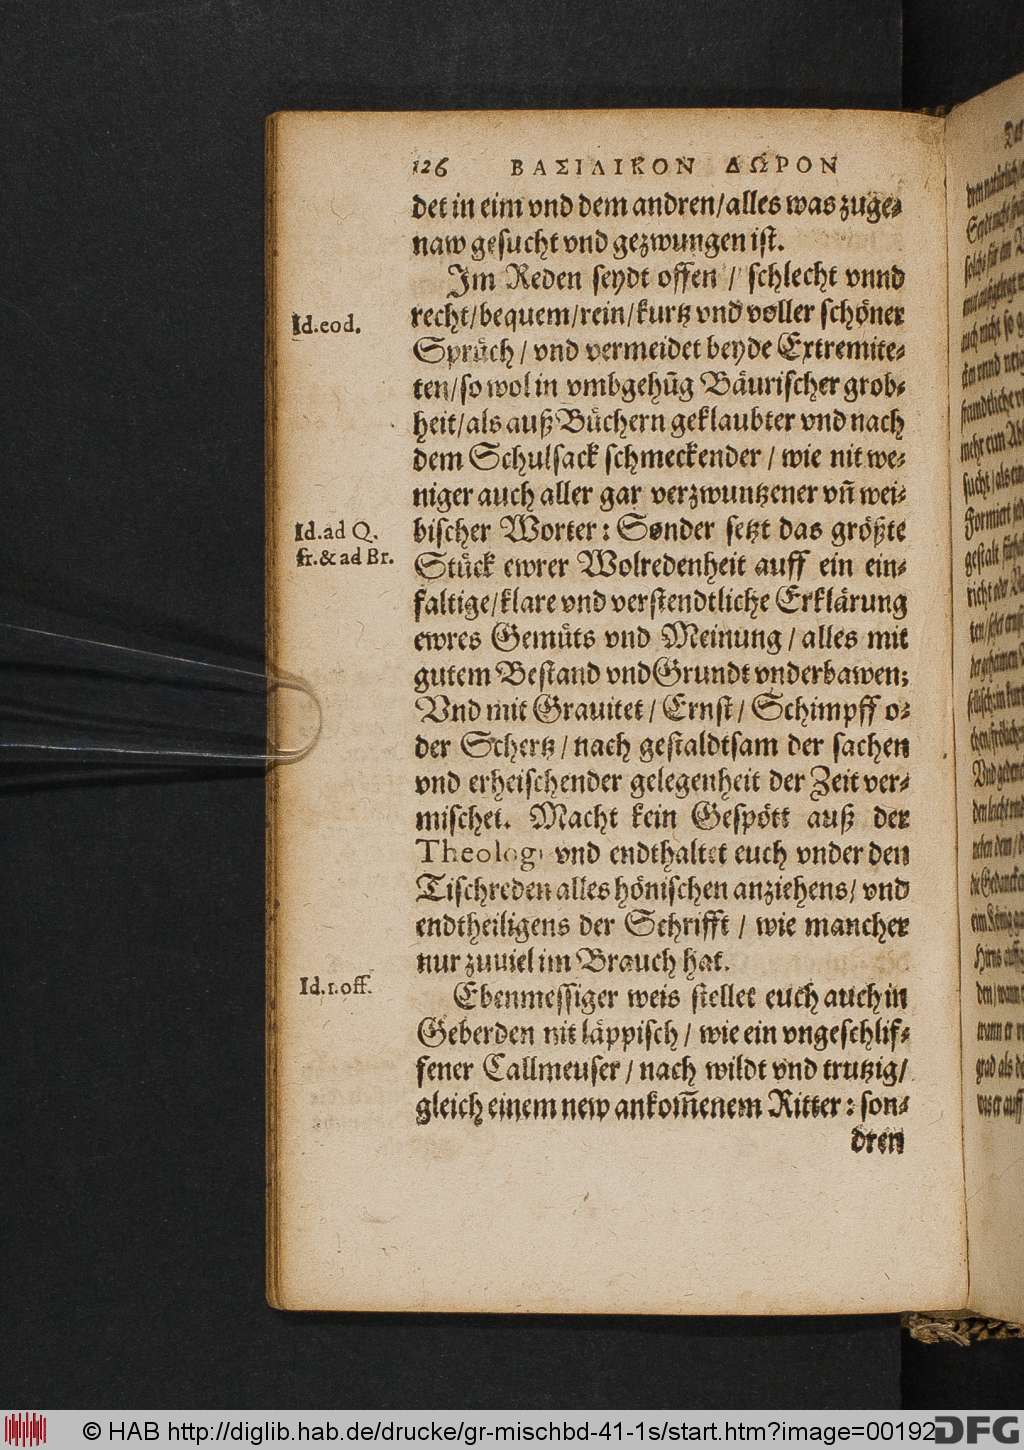 126 ΒΑΣΙΛΙΚΟΝ ΔΩΡΟΝ
det in eim vnd dem andren/alles was zuge-
naw gesucht vnd gezwungen ist.
Im Reden seydt offen / schlecht vnnd
Id.eod.
recht/bequem/rein/kurtz vnd voller schöner
Sprüch/ vnd vermeidet beyde Extremite-
ten/so wol in vmbgehũg Bäurischer grob-
heit/als auß Büchern geklaubter vnd nach
dem Schulsack schmeckender / wie nit we-
niger auch aller gar verzwuntzener vñ wei-
Id.ad Q.
fr.& ad Br.
bischer Worter: Sonder setzt das größte
Stück ewrer Wolredenheit auff ein ein-
faltige/klare vnd verstendtliche Erklärung
ewres Gemüts vnd Meinung/ alles mit
gutem Bestand vnd Grundt vnderbawen;
Vnd mit Grauitet/ Ernst/ Schimpff o-
der Schertz/ nach gestaldtsam der sachen
vnd erheischender gelegenheit der Zeit ver-
mischet. Macht kein Gespött auß der
Theologi vnd endthaltet euch vnder den
Tischreden alles hönischen anziehens/ vnd
endtheiligens der Schrifft / wie mancher
nur zuuiel im Brauch hat.
Id.1.off.
Ebenmessiger weis stellet euch auch in
Geberden nit läppisch/ wie ein vngeschlif-
fener Callmeuser/ nach wildt vnd trutzig/
gleich einem new ankom̃enem Ritter: son-
dren
© HAB http://diglib.hab.de/drucke/gr-mischbd-41-1s/start.htm?image=00192
DFG